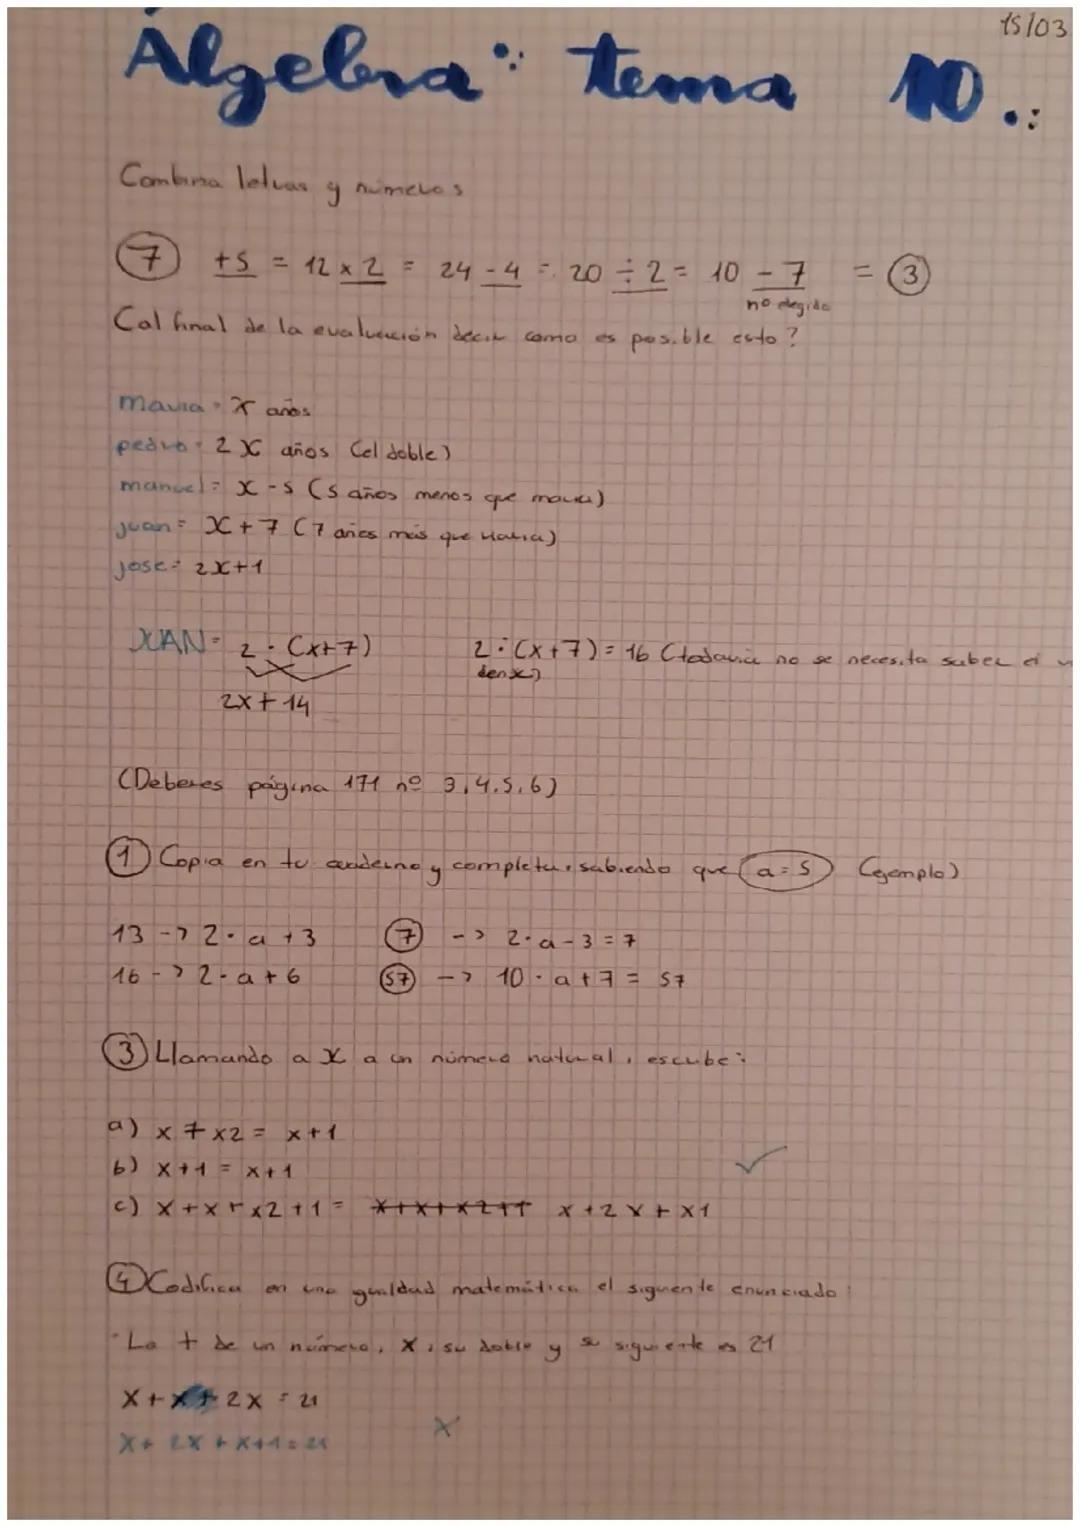 15/03
Álgebra: tema 10.:
Combina letras y números
7 +5 = 12 x 2 = 24 - 4 = 20 ÷ 2 = 10 - 7 = 3
nº elegido
(al final de la evaluación decir como es posible esto?
maria = x años
pedro = 2x años (el doble)
manuel = x - 5 (5 años menos que maria)
juan = x + 7 (7 años más que maria)
jose = 2x+1
JUAN = 2 · (x+7) 2 · (x+7) = 16 (todavia no se necesita saber el
2x + 14
(Deberes página 171 nº 3,4,5,6)
1 Copia en tu cuaderno y completa, sabiendo que a = 5 (ejemplo)
13 -> 2 · a + 3 7 -> 2 · a - 3 = 7
16 -> 2 · a + 6 57 -> 10 · a + 7 = 57
3 Llamando a x a un número natural, escribe:
a) x 7 x2 = x+1
b) x+1 = x+1
c) x + x + x2 + 1 = x+x+x2+1 x + 2x + x1
4 Codifica en una gualdad matemática el siguiente enunciado:
"La + de un número, x, su doble y su siguiente es 21
x + x + 2x = 21
x + 2x + x+1 = 21